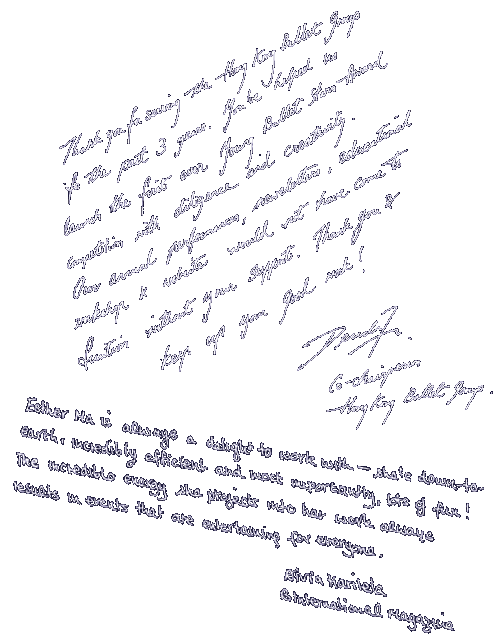 Thank you for serving the Hong Kong Ballet Group
for the past 3 years. You've helped us
launch the first ever Young Ballet Stars Award
competition with diligence and creativity.
Our annual performances, newsletters, educational
workshop & website would not have come to
fruition without your support. Thank you &
keep up your good work!
Co-chairperson
Hong Kong Ballet Group.
Esther MA is always a delight to work with – she's down-to-
earth, incredibly efficient and most importantly, lots of fun!
The incredible energy she projects into her work always
results in events that are entertaining for everyone.
International Magazine